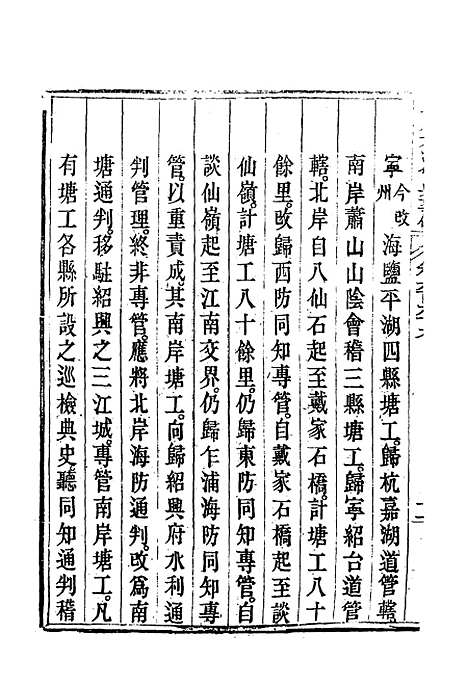 寧今改州海鹽平湖四縣塘工歸杭嘉湖道管轄
南岸蕭山山陰會稽三縣塘工歸寧紹台道管
轄北岸自八仙石起至戴家石橋計塘工八十
餘里改歸西防同知專管自戴家石橋起至談
仙嶺計塘工八十餘里仍歸東防同知專管自
談仙嶺起至江南交界仍歸乍浦海防同知專
管以重責成其南岸塘工向歸紹興府水利通
判管理終非專管應將北岸海防通判改爲南
塘通判移駐紹興之三江城專管南岸塘工凡
有塘工各縣所設之巡檢典史聽同知通判稽